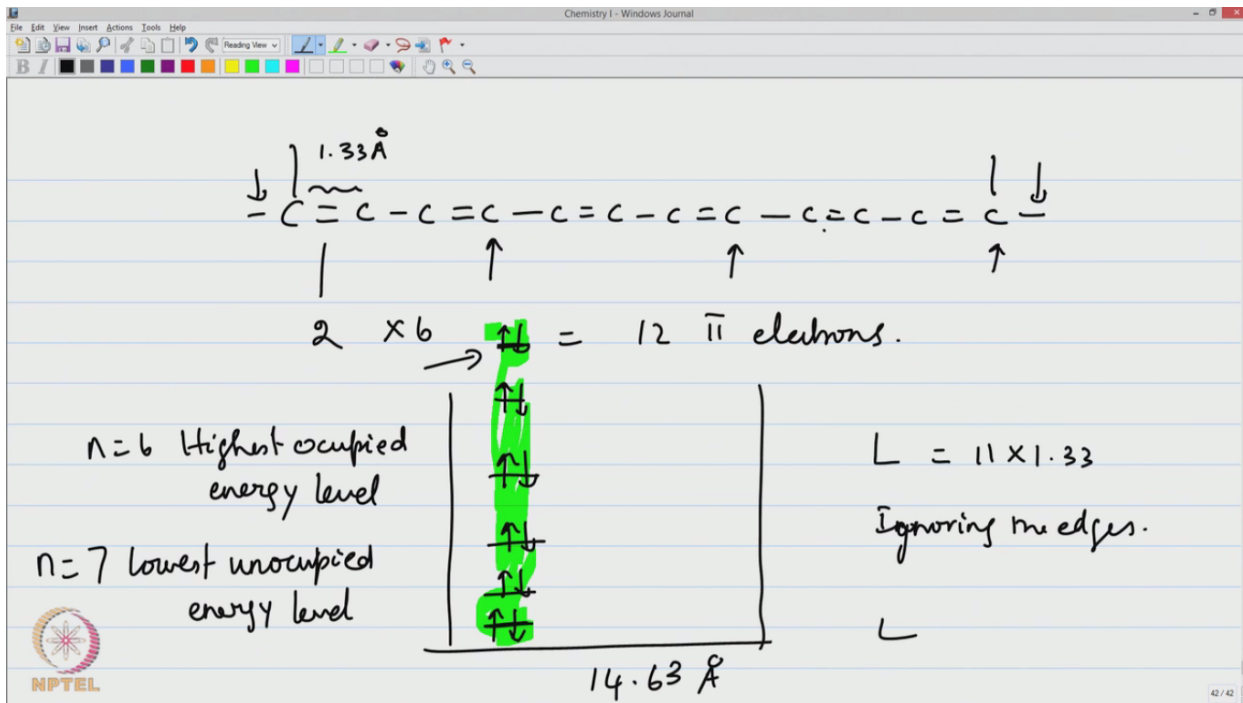 Chemistry I - Windows Journal
File Edit View Insert Actions Tools Help
Reading View
B I
1.33Å
- C = C - C = C - C = C - C = C - C = C - C = C -
2 x 6 = 12 π electrons.
n=6 Highest ocupied
energy level
n=7 lowest unocupied
energy level
L = 11 x 1.33
Ignoring the edges.
L
14.63 Å
NPTEL
42 / 42